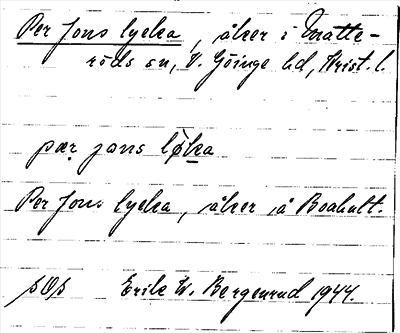 Per Jons lycka, åker i Matte-
röds sn, V. Göinge hd, Krist. l.
pær jons løka
Per Jons lycka, åker å Boahult.
sOs Erik W. Bergenrud 1944.